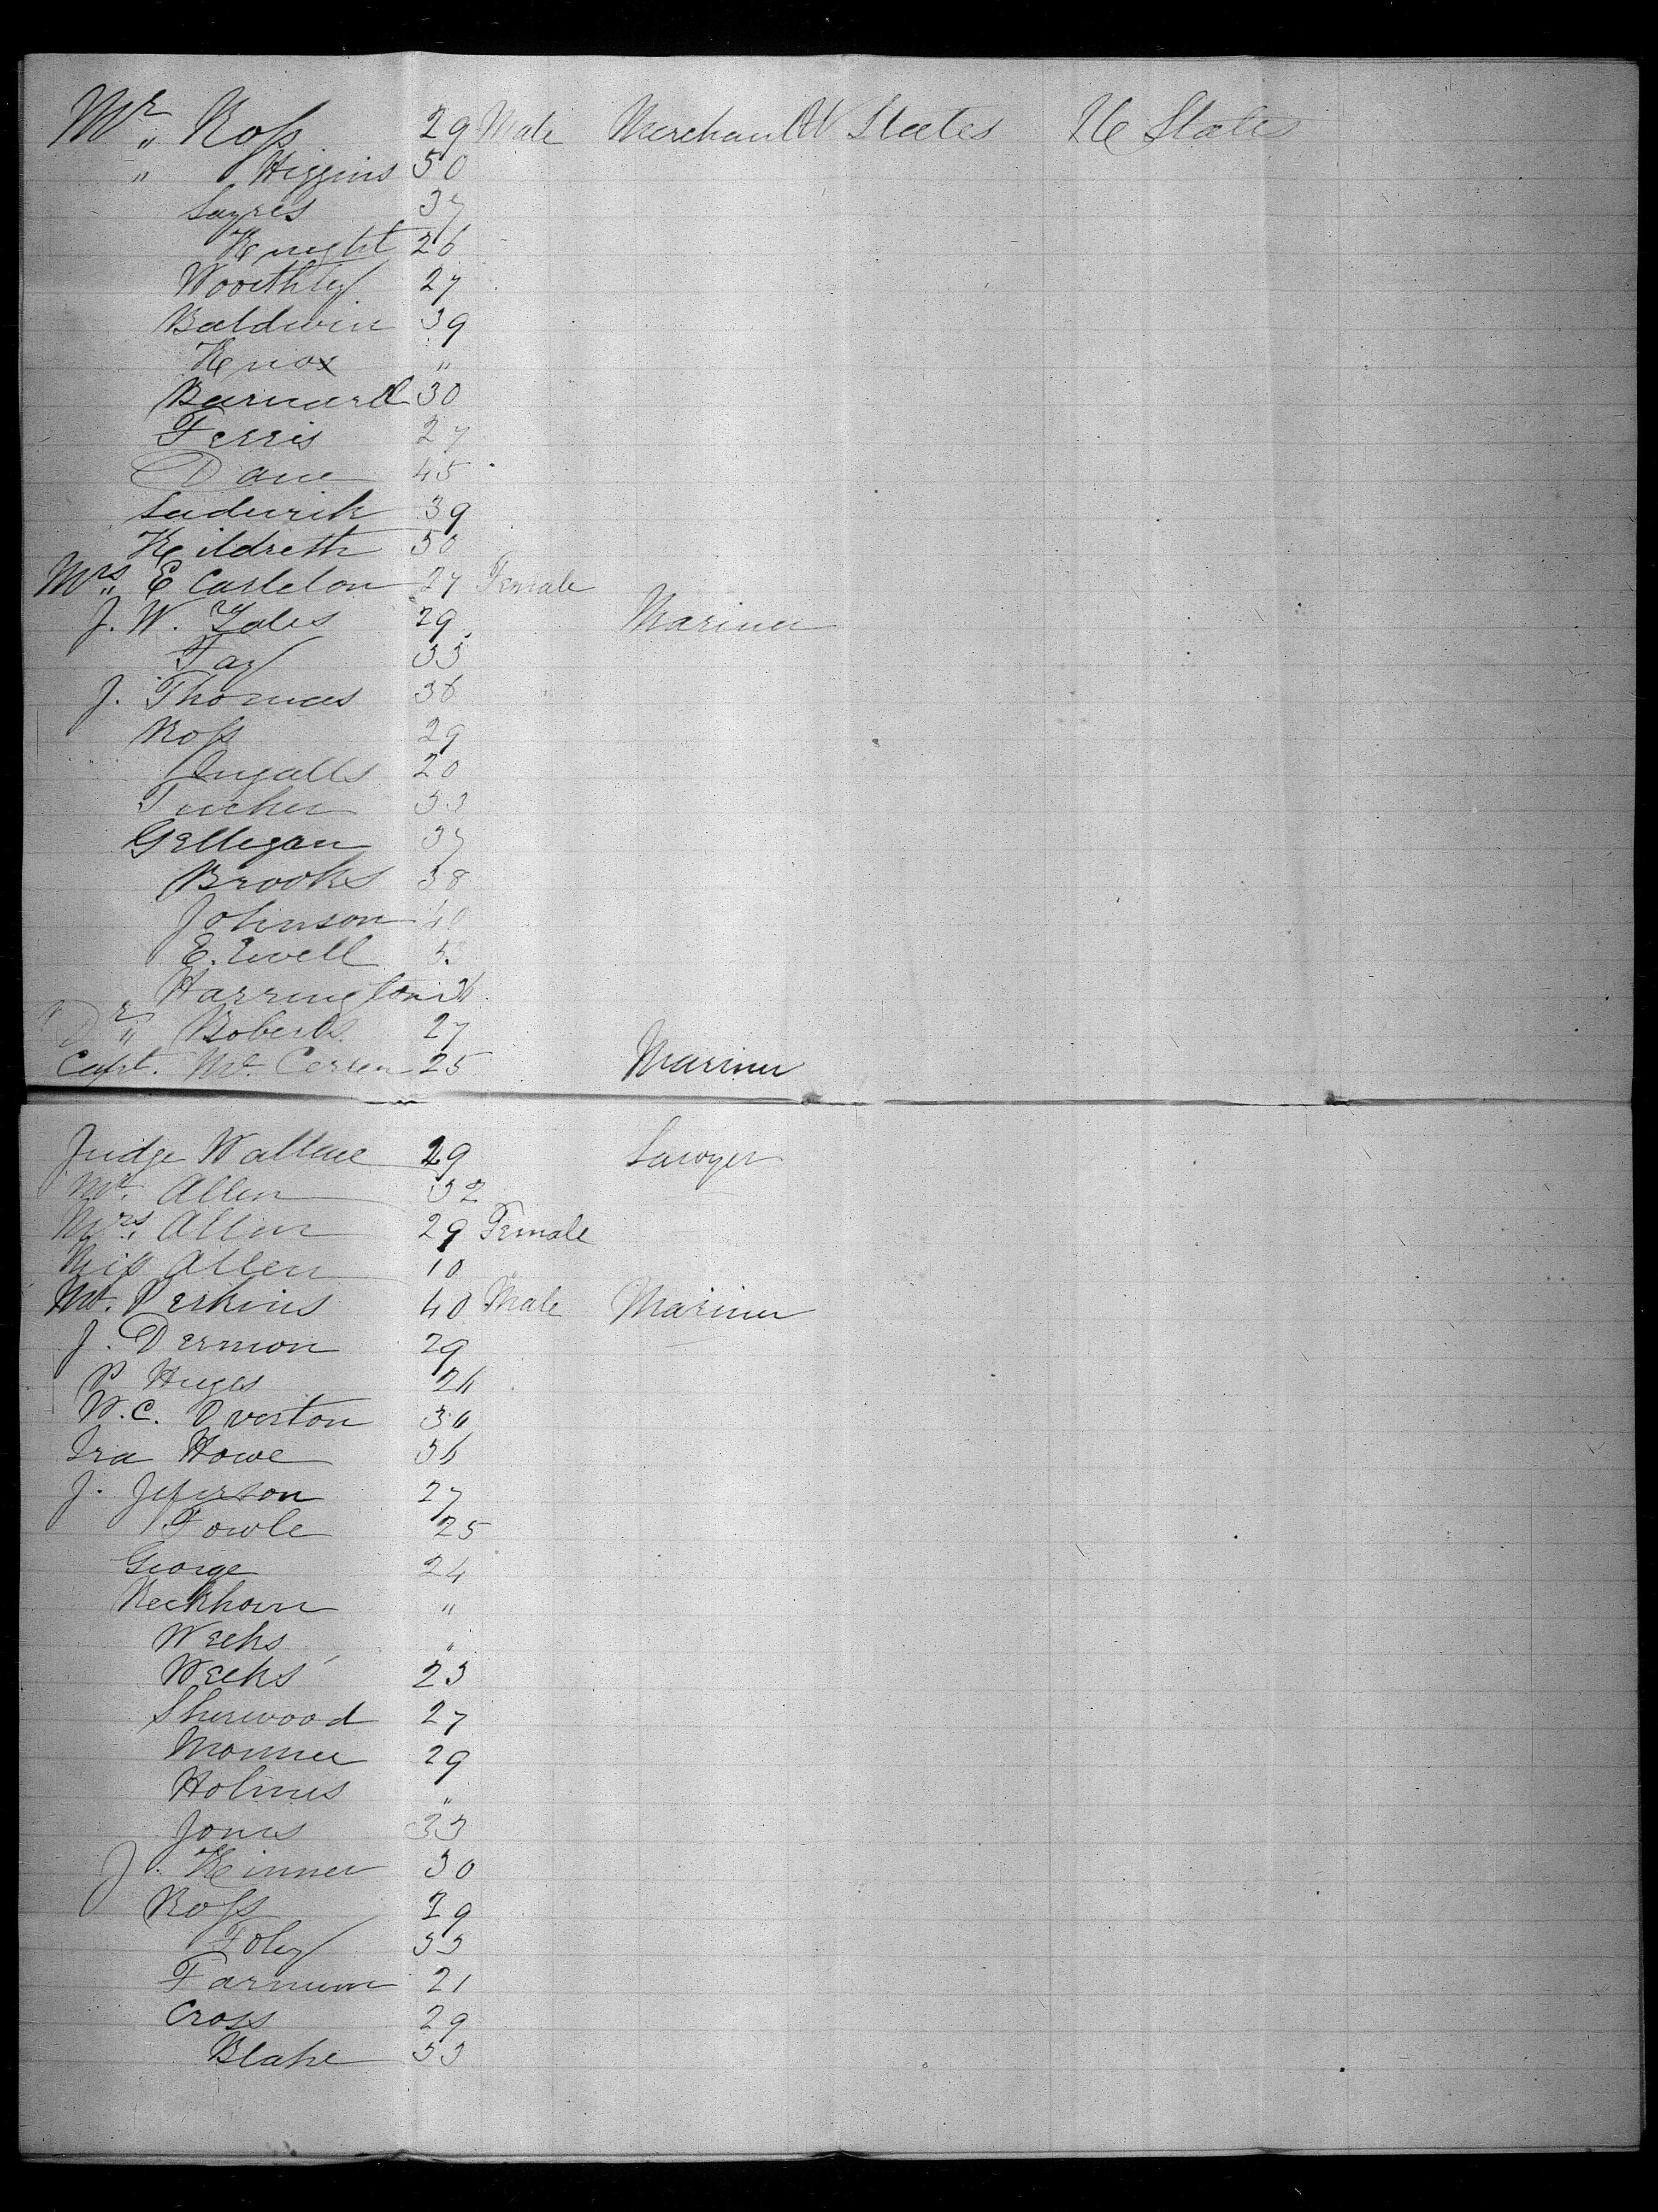 Mr. " Ross 29 Male Merchant U States U States
" Higgins 50
Sayres 37
Knight 26
Woorthley 27
Baldwin 39
Knox "
Barnard 30
Ferris 27
Dane 45
39
Kildreth 50
Mrs. " E Carleton 27 Female
J. W. Yates 29 Mariner
Fay 33
J. Thomas 36
Ross 29
Ingalls 20
Tucker 33
Gellegan 37
Brooks 38
Johnson 40
E. Ewell
Harrington
Dr " Roberts 27
Capt. Mc. 25 Mariner
Judge Wallace 29 Lawyer
Mr. Allen 32
Mrs. Allen 29 Female
Miss Allen 10 "
Mr. Perkins 40 Male Mariner
J. Dermon 29
P Huges 26
W. C. Overton 30
Ira Howe 36
J. Jeferson 27
Fowle 25
George 24
"
Weeks "
Weeks 23
Sherwood 27
29
Holmes "
Jones 33
J. Kinner 30
Ross 29
Foley 33
Farnum 21
Cross 29
Blake 33